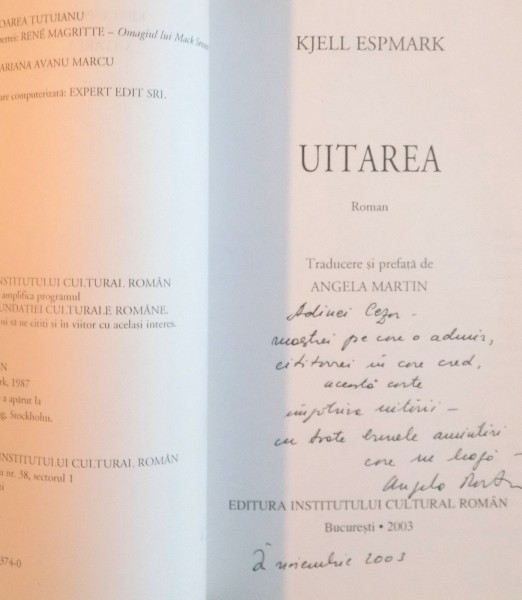 OAREA ȚUȚUIANU
RENÉ MAGRITTE – Omagiul lui Mack
ARIANA AVANU MARCU
are computerizată: EXPERT EDIT SRL.
NSTITUTULUI CULTURAL ROMÂN
amplifica programul
UNDAȚIEI CULTURALE ROMÂNE.
ui să ne citiți și în viitor cu același interes.
rk, 1987
a apărut la
g, Stockholm.
NSTITUTULUI CULTURAL ROMÂN
a nr. 38, sectorul 1
574-0
KJELL ESPMARK
UITAREA
Roman
Traducere și prefață de
ANGELA MARTIN
Adinei Cezar -
pe care o admir,
cititoarei în care cred,
această carte
împotriva uitării –
cu toate bunele amintiri
care ne leagă –
Angela Martin
EDITURA INSTITUTULUI CULTURAL ROMÂN
București • 2003
2 noiembrie 2003